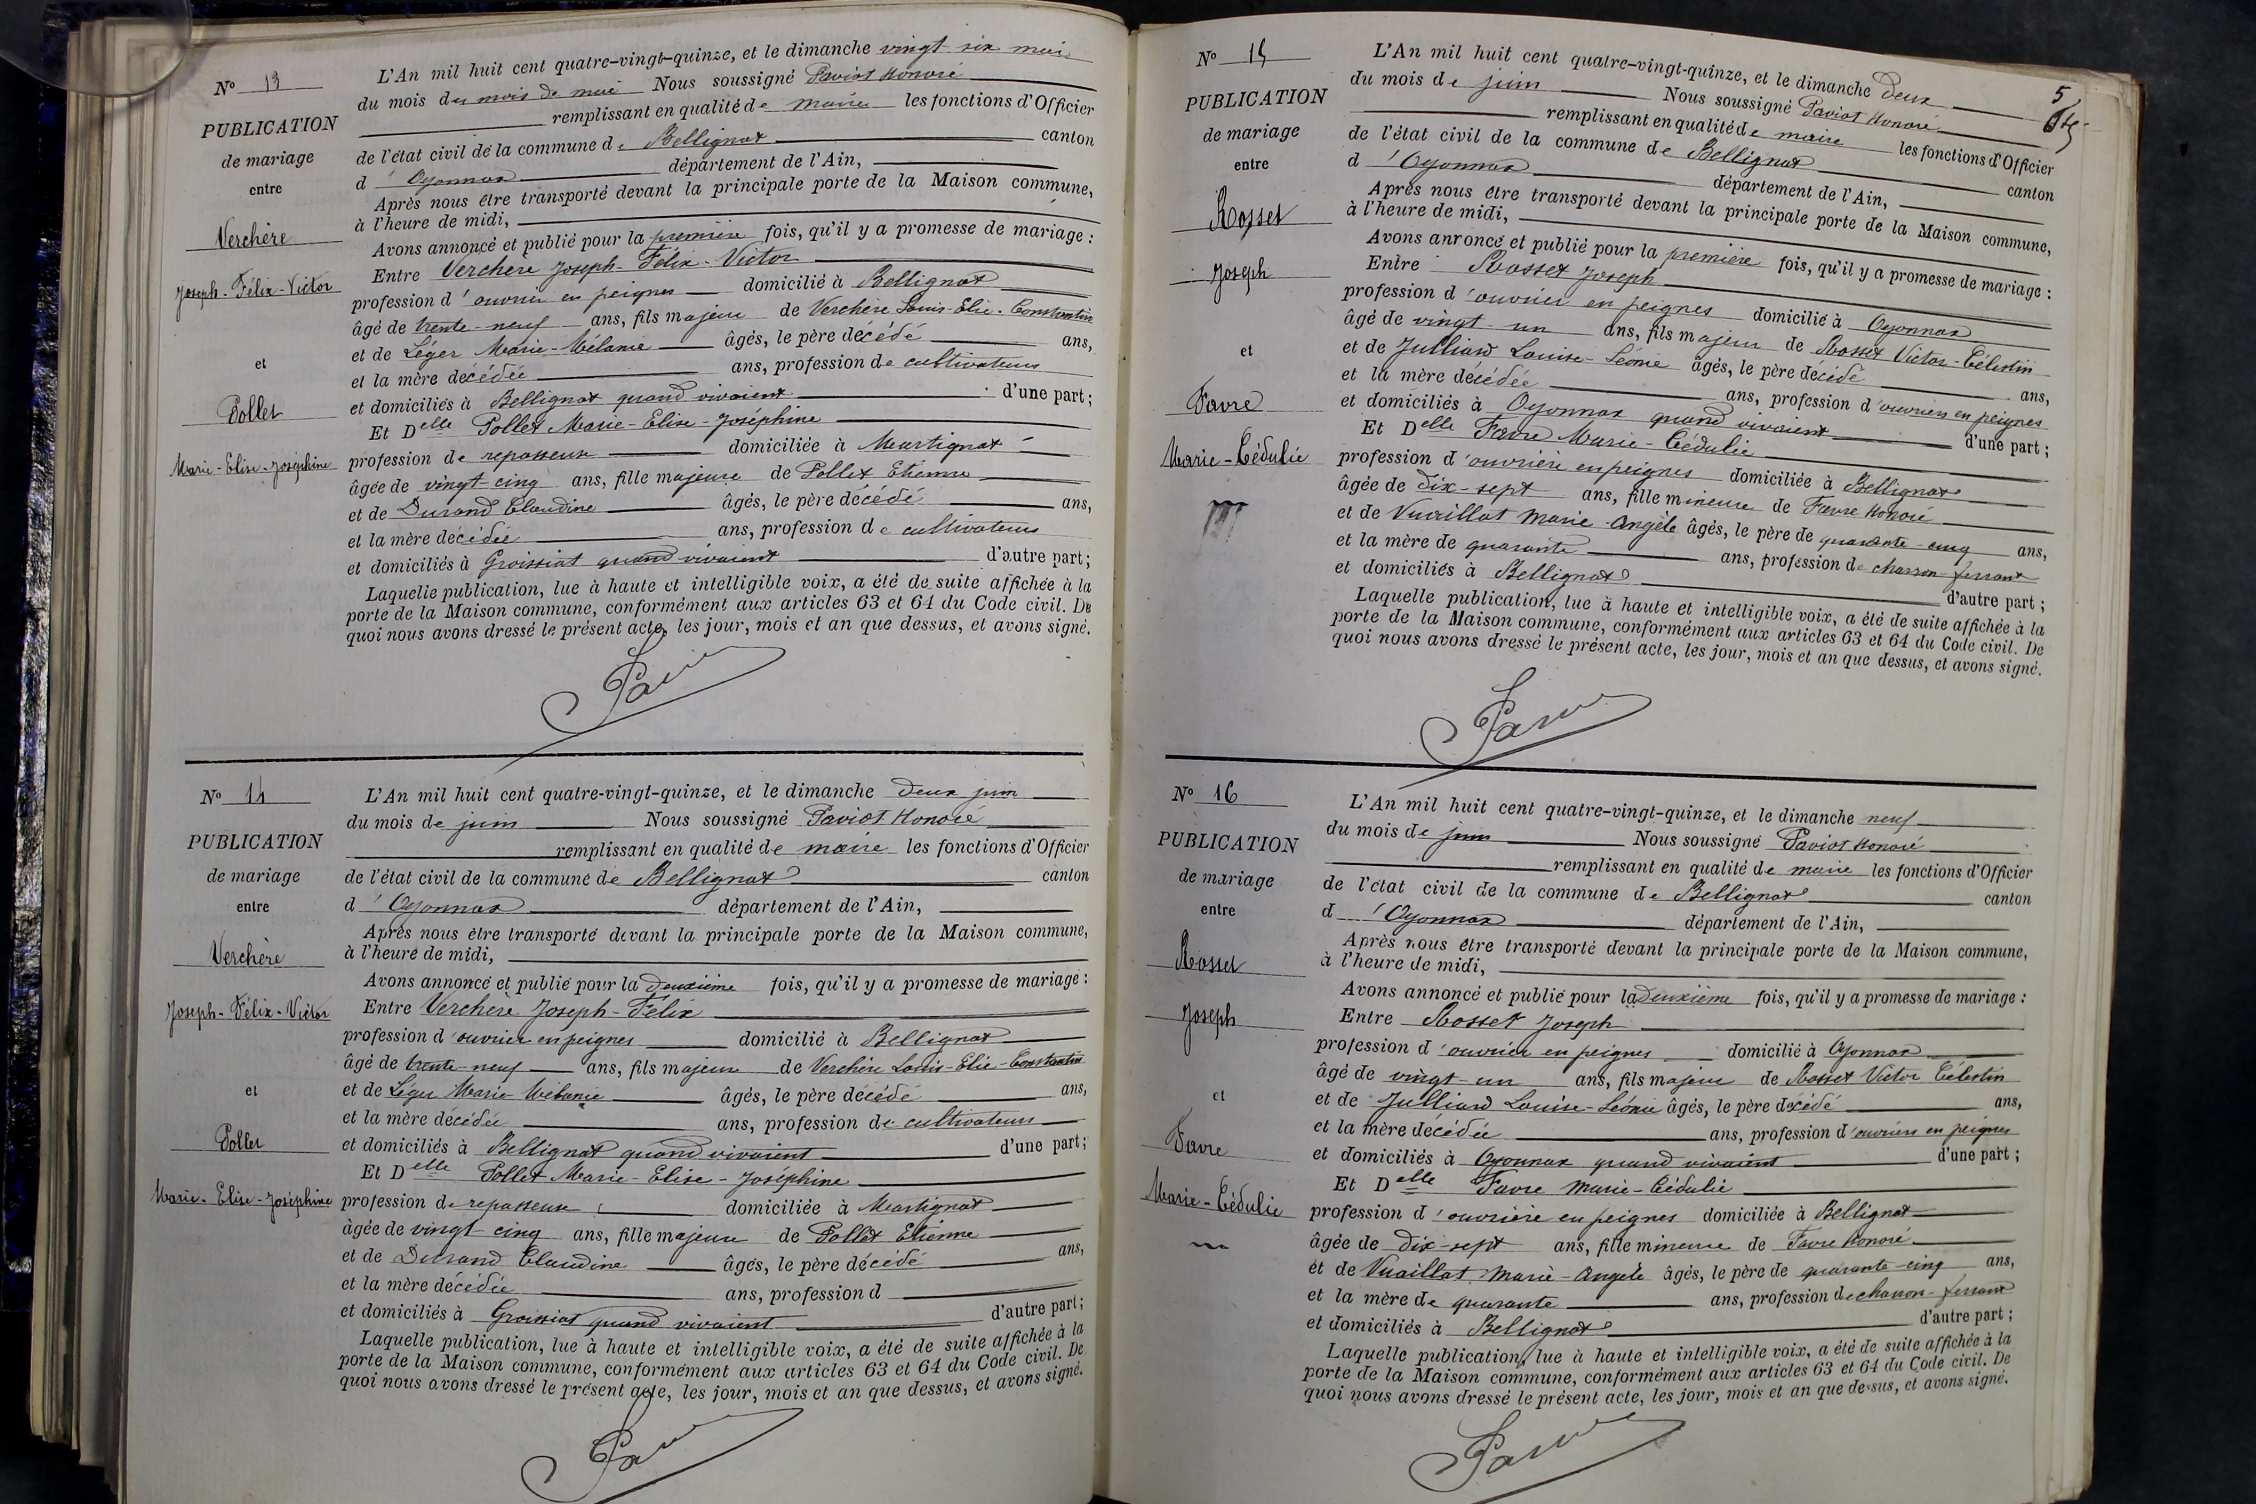 Nº 13
PUBLICATION
de mariage
entre
Verchère
Joseph-Félix-Victor
et
Pollet
Marie-Elise-Joséphine
L'An mil huit cent quatre-vingt-quinze, et le dimanche vingt six mai
du mois du mois de mai Nous soussigné Paviot Honoré
remplissant en qualité de maire les fonctions d'Officier
de l'état civil de la commune de Bellignat canton
d'Oyonnax département de l'Ain,
Après nous être transporté devant la principale porte de la Maison commune,
à l'heure de midi,
Avons annoncé et publié pour la première fois, qu'il y a promesse de mariage :
Entre Verchère Joseph-Félix-Victor
profession d'ouvrier en peignes domicilié à Bellignat
âgé de trente-neuf ans, fils majeur de Verchère Louis-Elie-Constantin
et de Léger Marie-Mélanie âgés, le père décédé ans,
et la mère décédée ans, profession de cultivateurs
et domiciliés à Bellignat quand vivaient d'une part ;
Et Delle Pollet Marie-Elise-Joséphine
profession de repasseuse domiciliée à Martignat
âgée de vingt-cinq ans, fille majeure de Pollet Etienne
et de Durand Claudine âgés, le père décédé ans,
et la mère décédée ans, profession de cultivateurs
et domiciliés à Groissiat quand vivaient d'autre part ;
Laquelle publication, lue à haute et intelligible voix, a été de suite affichée à la
porte de la Maison commune, conformément aux articles 63 et 64 du Code civil. De
quoi nous avons dressé le présent acte, les jour, mois et an que dessus, et avons signé.
Nº 14
PUBLICATION
de mariage
entre
Verchère
Joseph-Félix-Victor
et
Pollet
Marie-Elise-Joséphine
L'An mil huit cent quatre-vingt-quinze, et le dimanche deux juin
du mois de juin Nous soussigné Paviot Honoré
remplissant en qualité de maire les fonctions d'Officier
de l'état civil de la commune de Bellignat canton
d'Oyonnax département de l'Ain,
Après nous être transporté devant la principale porte de la Maison commune,
à l'heure de midi,
Avons annoncé et publié pour la deuxième fois, qu'il y a promesse de mariage :
Entre Verchère Joseph-Félix
profession d'ouvrier en peignes domicilié à Bellignat
âgé de trente-neuf ans, fils majeur de Verchère Louis-Elie-Constantin
et de Léger Marie-Mélanie âgés, le père décédé ans,
et la mère décédée ans, profession de cultivateurs
et domiciliés à Bellignat quand vivaient d'une part ;
Et Delle Pollet Marie-Elise-Joséphine
profession de repasseuse domiciliée à Martignat
âgée de vingt-cinq ans, fille majeure de Pollet Etienne
et de Durand Claudine âgés, le père décédé ans,
et la mère décédée ans, profession d
et domiciliés à Groissiat quand vivaient d'autre part ;
Laquelle publication, lue à haute et intelligible voix, a été de suite affichée à la
porte de la Maison commune, conformément aux articles 63 et 64 du Code civil. De
quoi nous avons dressé le présent acte, les jour, mois et an que dessus, et avons signé.
5
Nº 15
PUBLICATION
de mariage
entre
Rosset
Joseph
et
Favre
Marie-Cédulie
L'An mil huit cent quatre-vingt-quinze, et le dimanche deux
du mois de juin Nous soussigné Paviot Honoré
remplissant en qualité de maire les fonctions d'Officier
de l'état civil de la commune de Bellignat canton
d'Oyonnax département de l'Ain,
Après nous être transporté devant la principale porte de la Maison commune,
à l'heure de midi,
Avons annoncé et publié pour la première fois, qu'il y a promesse de mariage :
Entre Rosset Joseph
profession d'ouvrier en peignes domicilié à Oyonnax
âgé de vingt-un ans, fils majeur de Rosset Victor-Célestin
et de Julliard Louise-Léonie âgés, le père décédé ans,
et la mère décédée ans, profession d'ouvriers en peignes
et domiciliés à Oyonnax quand vivaient d'une part ;
Et Delle Favre Marie-Cédulie
profession d'ouvrière en peignes domiciliée à Bellignat
âgée de dix-sept ans, fille mineure de Favre Honoré
et de Vuaillat Marie-Angèle âgés, le père de quarante-cinq ans,
et la mère de quarante ans, profession de charron-ferrant
et domiciliés à Bellignat d'autre part ;
Laquelle publication, lue à haute et intelligible voix, a été de suite affichée à la
porte de la Maison commune, conformément aux articles 63 et 64 du Code civil. De
quoi nous avons dressé le présent acte, les jour, mois et an que dessus, et avons signé.
Nº 16
PUBLICATION
de mariage
entre
Rosset
Joseph
et
Favre
Marie-Cédulie
L'An mil huit cent quatre-vingt-quinze, et le dimanche neuf
du mois de juin Nous soussigné Paviot Honoré
remplissant en qualité de maire les fonctions d'Officier
de l'état civil de la commune de Bellignat canton
d'Oyonnax département de l'Ain,
Après nous être transporté devant la principale porte de la Maison commune,
à l'heure de midi,
Avons annoncé et publié pour la deuxième fois, qu'il y a promesse de mariage :
Entre Rosset Joseph
profession d'ouvrier en peignes domicilié à Oyonnax
âgé de vingt-un ans, fils majeur de Rosset Victor Célestin
et de Julliard Louise-Léonie âgés, le père décédé ans,
et la mère décédée ans, profession d'ouvriers en peignes
et domiciliés à Oyonnax quand vivaient d'une part ;
Et Delle Favre Marie-Cédulie
profession d'ouvrière en peignes domiciliée à Bellignat
âgée de dix-sept ans, fille mineure de Favre Honoré
et de Vuaillat Marie-Angèle âgés, le père de quarante-cinq ans,
et la mère de quarante ans, profession de charron-ferrant
et domiciliés à Bellignat d'autre part ;
Laquelle publication, lue à haute et intelligible voix, a été de suite affichée à la
porte de la Maison commune, conformément aux articles 63 et 64 du Code civil. De
quoi nous avons dressé le présent acte, les jour, mois et an que dessus, et avons signé.